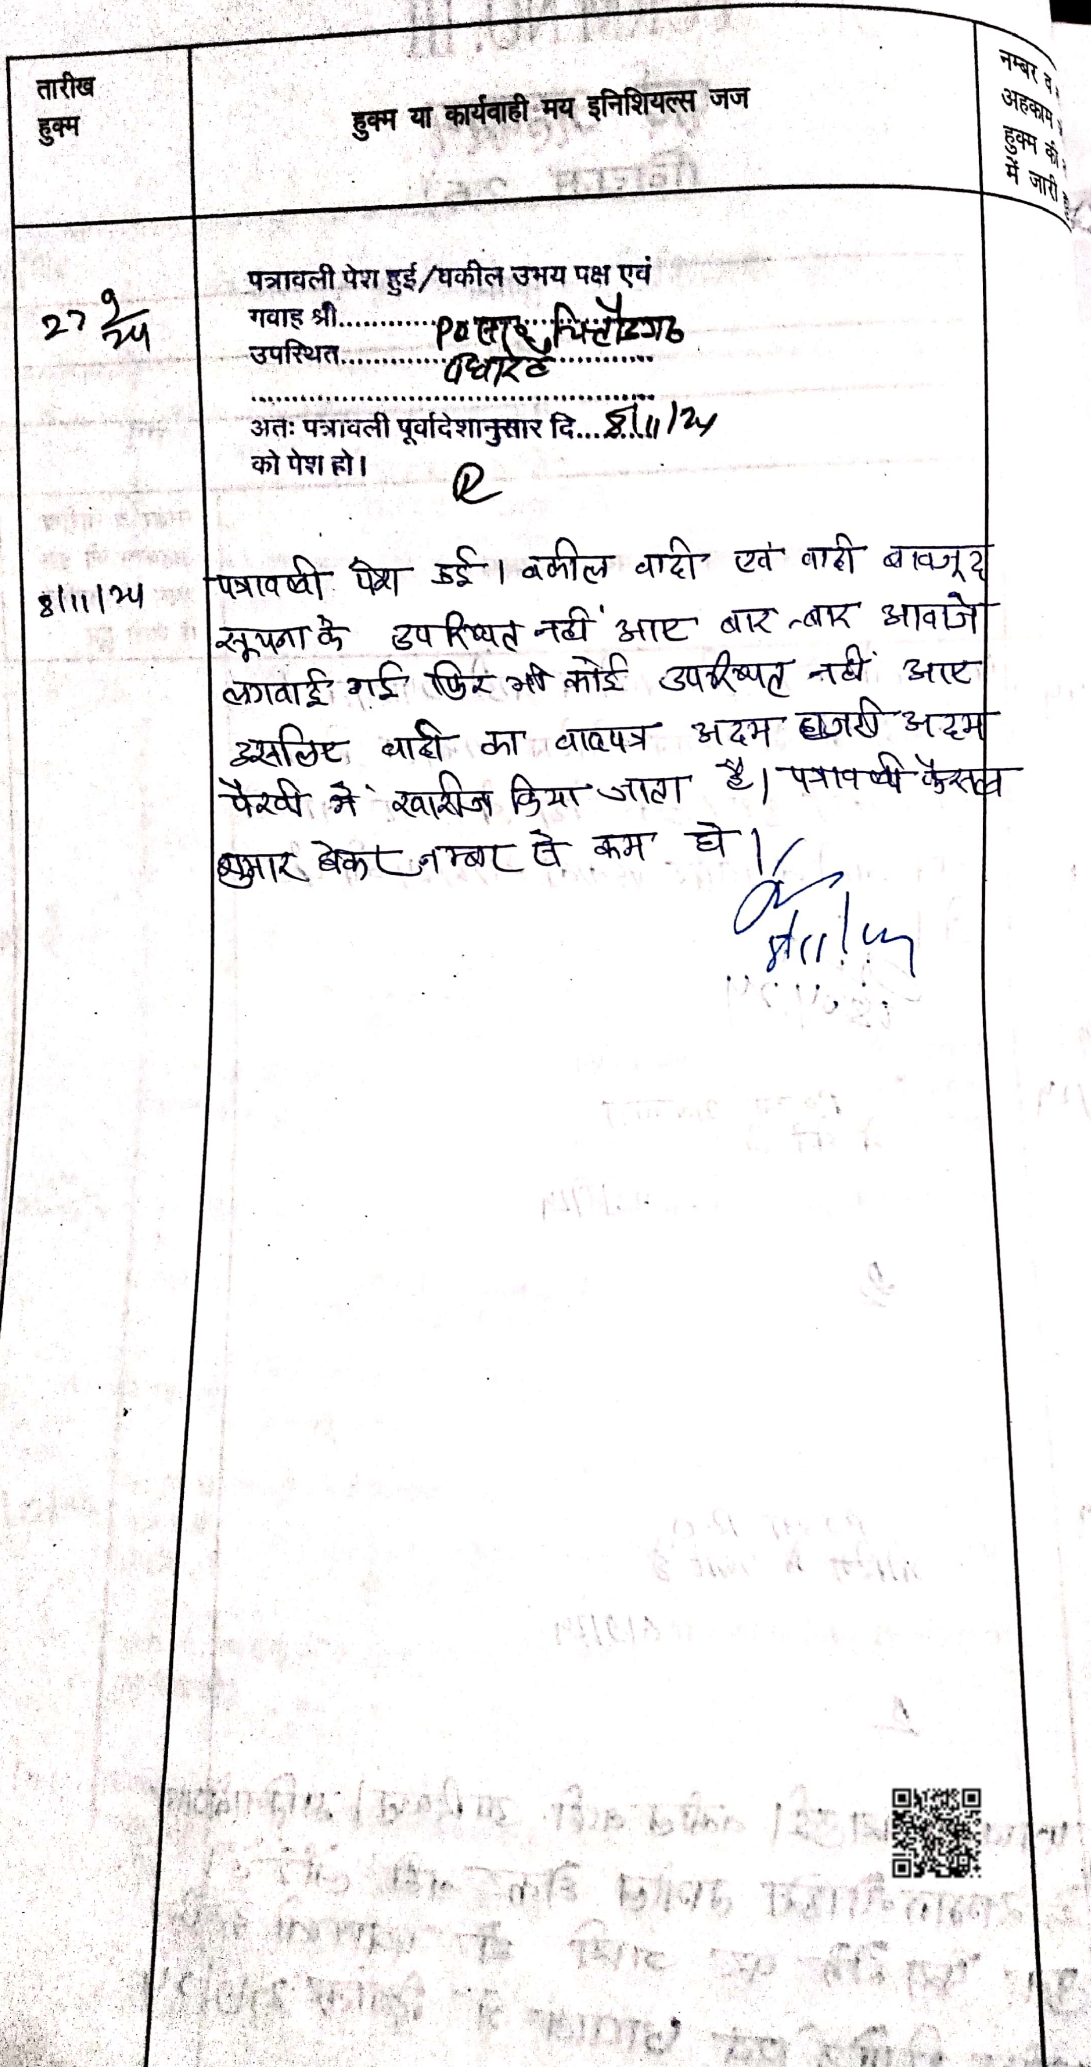 तारीख
हुक्म
हुक्म या कार्यवाही मय इनिशियल्स जज
नम्बर व
अहकाम
हुक्म की
में जारी
27 9/24
पत्रावली पेश हुई/वकील उभय पक्ष एवं
गवाह श्री............
उपस्थित............
अतः पत्रावली पूर्वादेशानुसार दि....8/11/24
को पेश हो।
8/11/24
पत्रावली पेश हुई। वकील वादी एवं वादी बावजूद
सूचना के उपस्थित नहीं आए बार-बार आवाजे
लगवाई गई फिर भी कोई उपस्थित नहीं आए
इसलिए वादी का वादपत्र अदम हाजरी अदम
पैरवी में खारीज किया जाता है। पत्रावली फैसल
शुमार होकर नम्बर से कम हो।